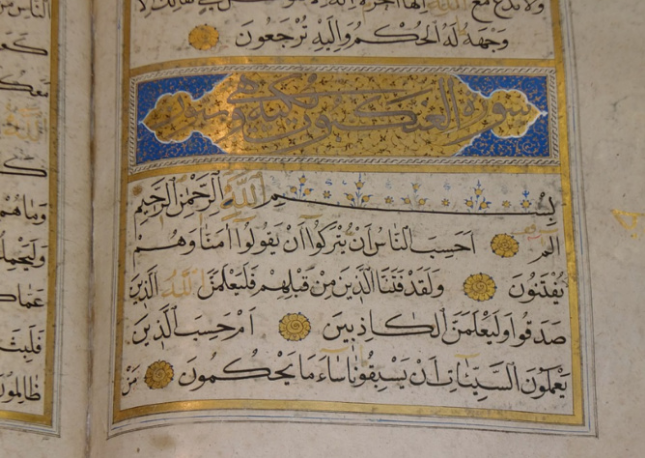 ولا تدع مع الله الها اخر
وجهه له الحكم واليه ترجعون
سورة العنكبوت مكية وهي
بسم الله الرحمن الرحيم
الم احسب الناس ان يتركوا ان يقولوا امنا وهم
يفتنون ولقد فتنا الذين من قبلهم فليعلمن الله الذين
صدقوا وليعلمن الكاذبين ام حسب الذين
يعملون السيئات ان يسبقونا ساء ما يحكمون من
الناس من
معكم
وما هم
فلبث
ظالمون